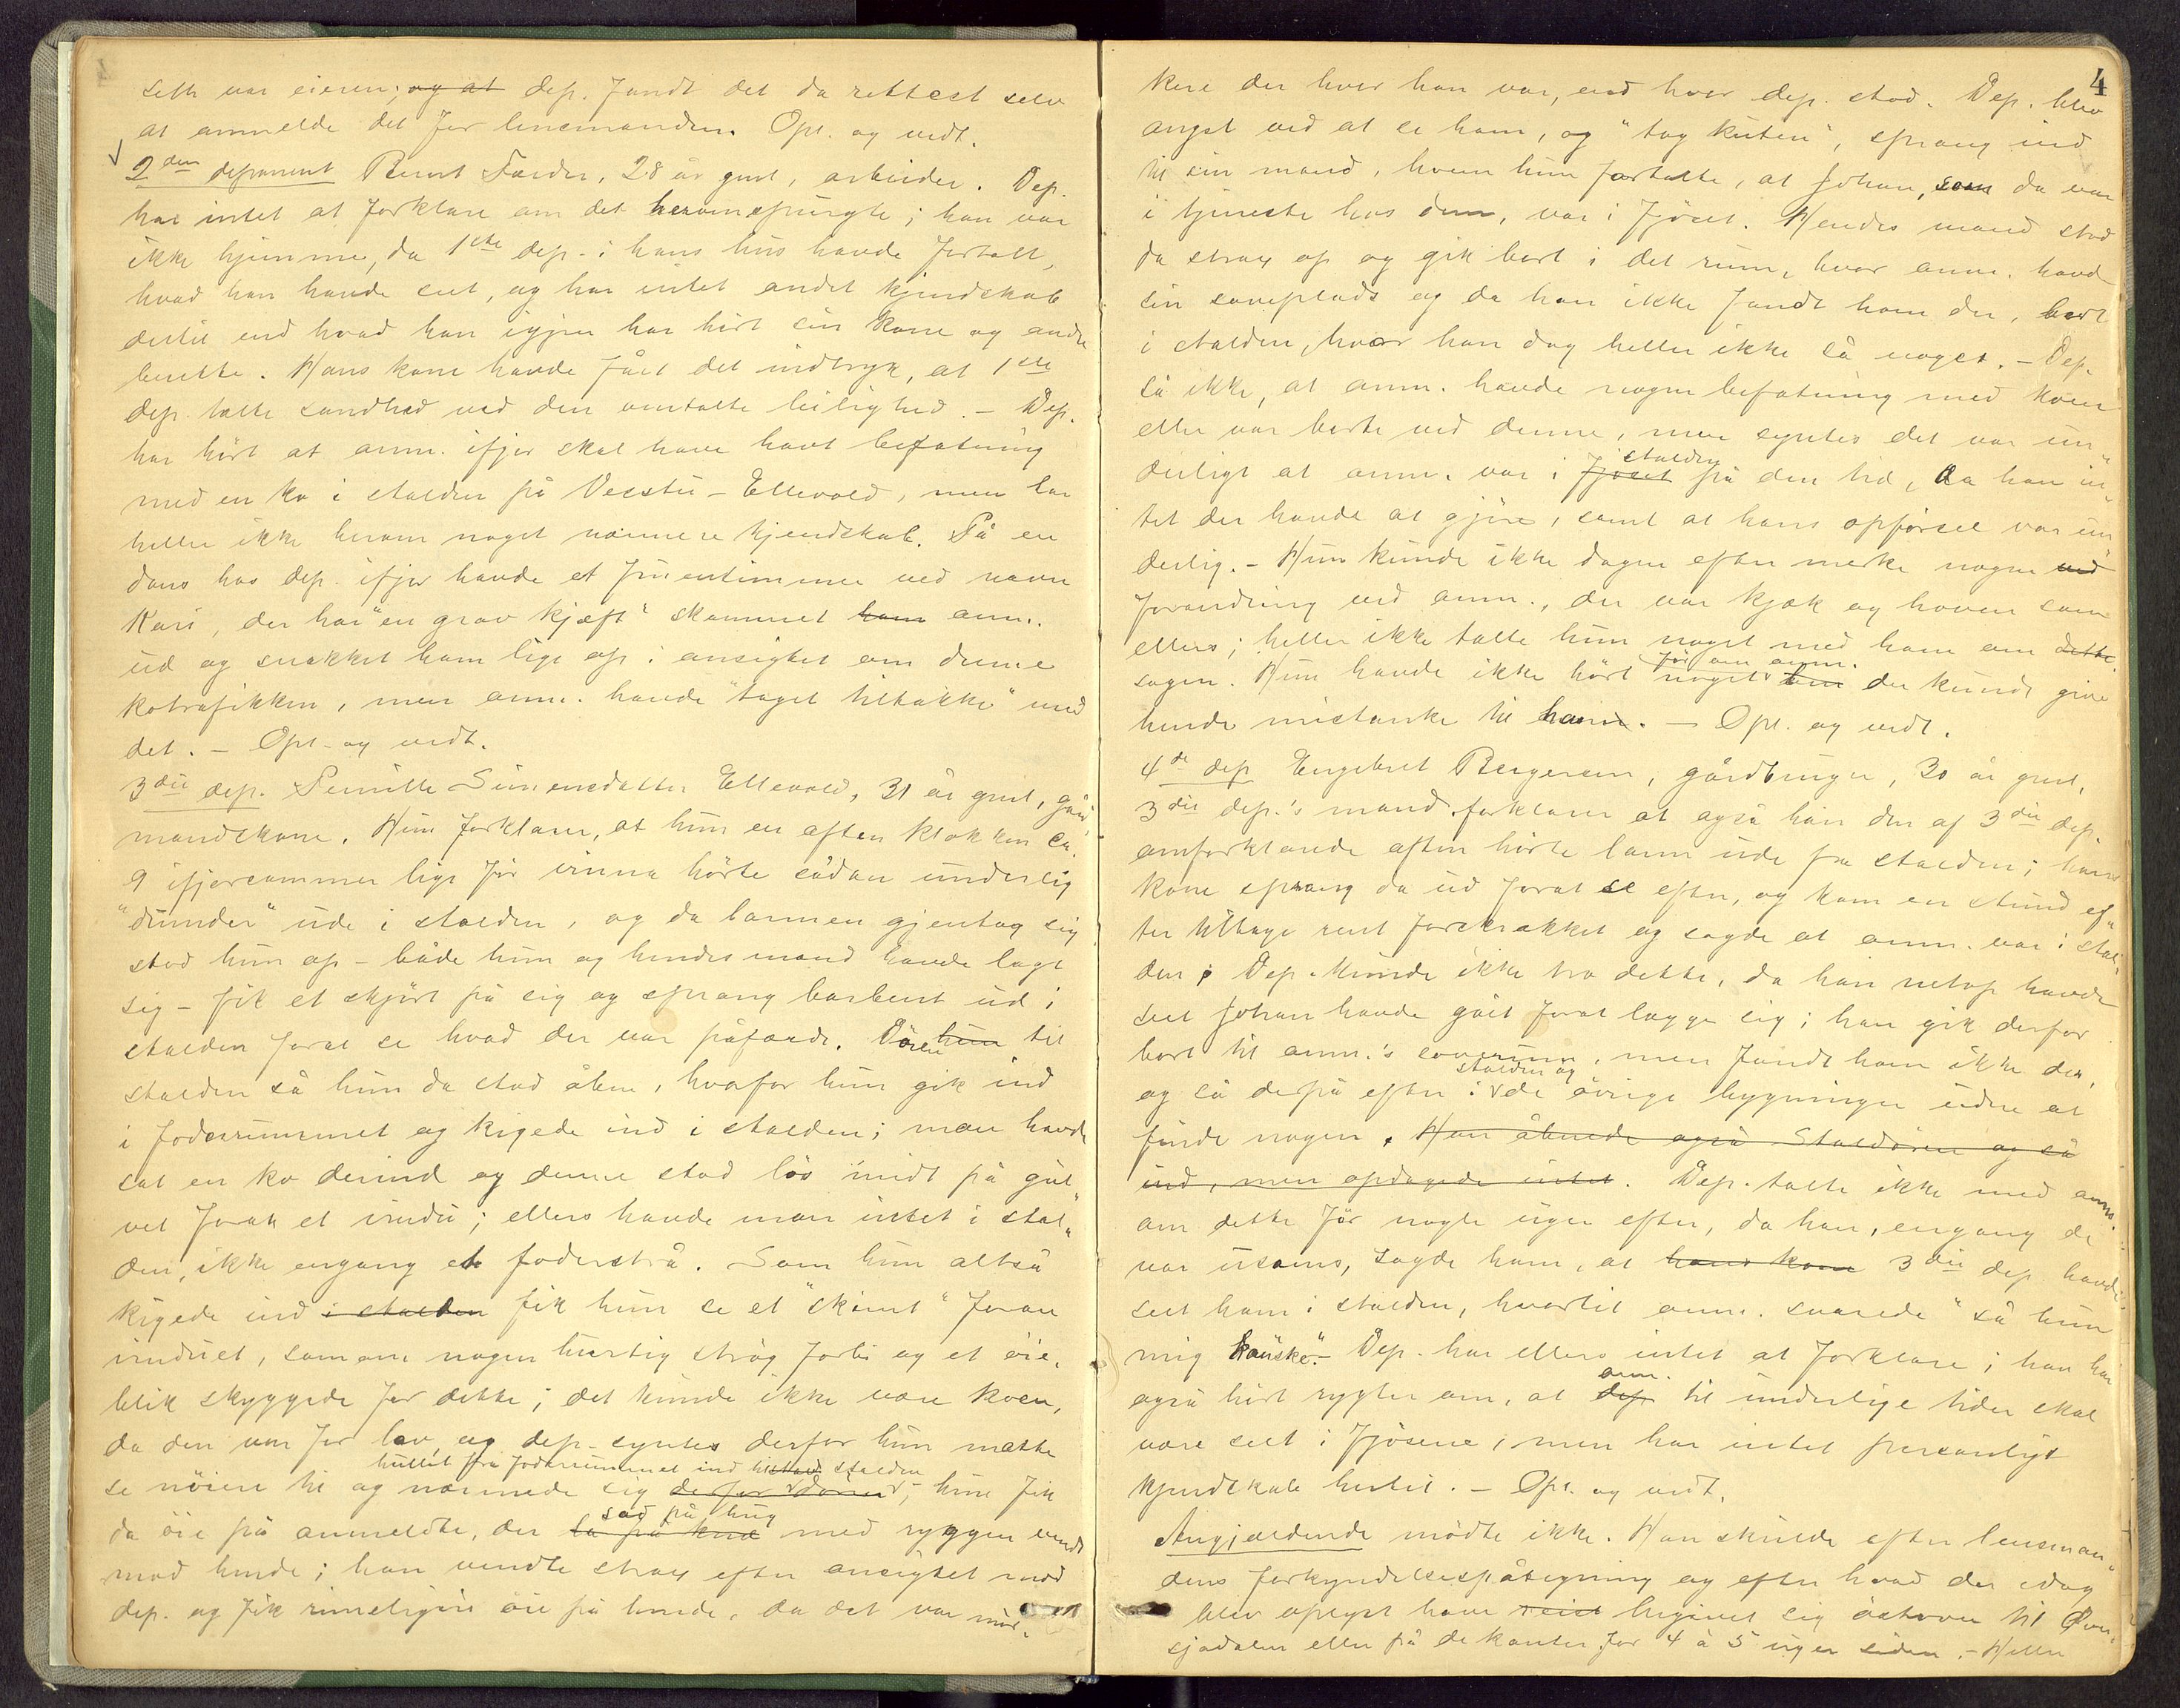 selv var eieren; og at dep. fandt det da rettest selv
at anmelde det for lensmanden. Opl. og vedt.
2den deponent Bernt Færder, 28 år gml, arbeider. Dep.
har intet at forklare om det herom spurgte; han var
ikke hjemme, da 1ste dep. i hans hus havde fortalt,
hvad han havde seet, og har intet andet kjendskab
dertil end hvad han igjen har hört sin kone og andre
berette. Hans kone havde fået det indtryk, at 1ste
dep. talte sandhed ved den omtalte leilighed. – Dep.
har hört at anm. ifjor skal have havt befatning
med en ko i stalden på Vesstu-Ellevold, men har
heller ikke herom noget nærmere kjendskab. På en
dans hos dep. ifjor havde et fruentimmer ved navn
Kari, der har "en grov kjæft" skammet ham anm.
ud og snakket ham lige op i ansigtet om denne
kotrafikken, men anm. havde "taget tiltakke" med
det. – Opl. og vedt.
3die dep. Pernille Simensdatter Ellevold, 31 år gml, gård
mandskone. Hun forklarer, at hun en aften klokken ca.
9 ifjorsommer lige för vinna hörte sådan underlig
"dunder" ude i stalden, og da larmen gjentog sig
stod hun op – både hun og hendes mand havde lagt
sig – fik et skjört på sig og sprang barbent ud i
stalden forat se hvad der var påfærde. Dören hun til
stalden så hun da stod åben, hvorfor hun gik ind
i foderrummet og kigede ind i stalden; man havde
sat en ko derind og denne stod lös midt på gul-
vet foran et vindu; ellers havde man intet i stal-
den, ikke engang et foderstrå. Som hun altså
kigede ind i stalden fik hun se et "skimt" foran
vinduet, som om nogen hurtig strög forbi og et öie-
blik skyggede for dette; det kunde ikke være koen,
da den var for lav, og dep. syntes derfor hun måtte
hullet fra foderrummet ind til stalden
se nöiere til og nærmede sig derfor dören; hun fik
sad på hug
da öie på anmeldte, der lå på knæ med ryggen vendt
mod hende; han vendte strax efter ansigtet mod
dep. og fik rimeligvis öie på hende, da det var mör-
4
kere der hvor han var, end hvor dep. stod. Dep. blev
angst ved at se ham, og "tog kuten", sprang ind
til sin mand, hvem hun fortalte, at Johan, som da var
i tjeneste hos dem, var i fjöset. Hendes mand stod
da strax op og gik bort i det rum, hvor anm. havde
sin soveplads og da han ikke fandt ham der, bort
i stalden, hvor han dog heller ikke så noget. – Dep.
så ikke, at anm. havde nogen befatning med koen
eller var borte ved denne, men syntes det var un-
stalden
derligt at anm. var i fjöset på den tid, da han in-
tet der havde at gjöre, samt at hans opförsel var un-
derlig. – Hun kunde ikke dagen efter merke nogen ved
forandring ved anm., der var kjæk og hoven som
ellers; heller ikke talte hun noget med ham om dette.
för om anm.
sagen. Hun havde ikke hört noget om der kunde give
hende mistanke til ham. – Opl. og vedt.
4de dep Engebret Bergersen, gårdbruger, 30 år gml,
3die dep.'s mand forklarer at også han den af 3die dep.
omforklarede aften hörte larm ude fra stalden; hans
kone sprang da ud forat se efter, og kom en stund ef-
ter tilbage rent forskrækket og sagde at anm. var i stal-
den. Dep. kunde ikke tro dette, da han netop havde
seet Johan havde gåt forat lægge sig; han gik derfor
bort til anm.'s soverum, men fandt ham ikke der,
stalden og
og så derpå efter i de övrige bygninger uden at
finde nogen. Han åbnede også Staldören og så
ind, men opdagede intet. Dep. talte ikke med anm.
om dette för nogle uger efter, da han, engang de
var usams, sagde ham, at hans kone 3die dep. havde
seet ham i stalden, hvortil anm. svarede "så hun
mig kanske". – Dep. har ellers intet at forklare; han har
anm.
også hört rygter om, at dep til underlige tider skal
være seet i fjösene, men har intet personligt
kjendskab hertil. – Opl. og vedt.
Angjældende mödte ikke. Han skulde efter lensman-
dens forkyndelsespåtegning og efter hvad der idag
blev oplyst have reist begivet sig östover til Över-
sjödalen eller på de kanter for 4 à 5 uger siden. – Heller